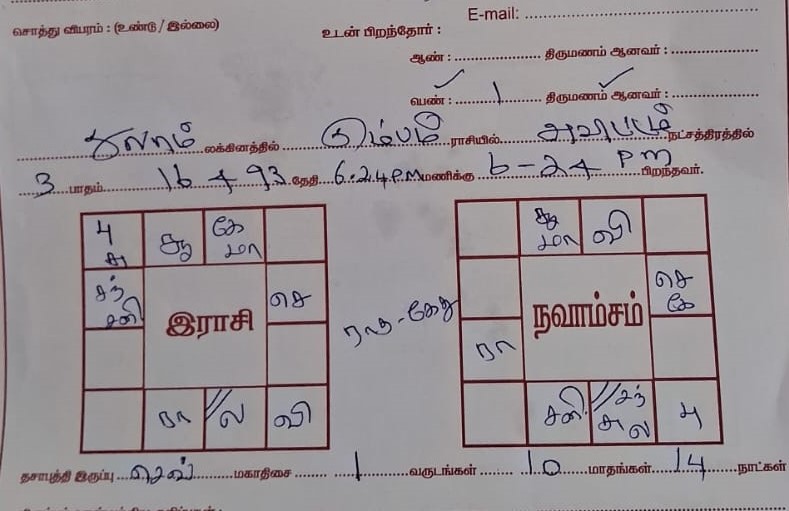 E-mail: ............
சொத்து விபரம் : (உண்டு / இல்லை) உடன் பிறந்தோர் :
ஆண் : ............ திருமணம் ஆனவர் : ............
பெண் : ...✓... 1 ... திருமணம் ஆனவர் : ...✓...
துலாம் லக்கினத்தில் கும்பம் ராசியில் அவிட்டம் நட்சத்திரத்தில்
3 பாதம் 16 4 93 தேதி 6.24 P.M மணிக்கு 6-24 PM பிறந்தவர்.
பு சு சூ கே மா
சூ மா வி
சந் சனி இராசி செ
நவாம்சம் செ கே
ராகு - கேது
ரா
ரா ல வி
சனி சந் சு ல பு
தசாபுத்தி இருப்பு செவ் மகாதிசை 1 வருடங்கள் 10 மாதங்கள் 14 நாட்கள்